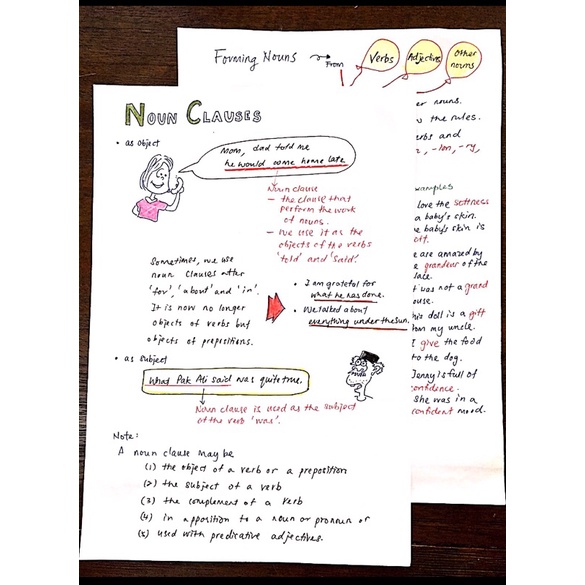 Forming Nouns
From
Verbs
Adjectives
Other
nouns
er nouns.
the rules.
erbs and
-ion, -ry,
xamples
love the softness
a baby's skin.
e baby's skin is
oft.
e are amazed by
grandeur of the
lace.
t was not a grand
ouse.
his doll is a gift
om my uncle.
I give the food
to the dog.
Jenny is full of
confidence.
She was in a
confident mood.
NOUN CLAUSES
• as Object
Mom, dad told me
he would come home late
Noun clause
– the clause that
perform the work
of nouns.
– We use it as the
objects of the verbs
'told' and 'said'.
Sometimes, we use
noun clauses after
'for', 'about' and 'in'.
It is now no longer
objects of verbs but
objects of prepositions.
• I am grateful for
what he has done.
• We talked about
everything under the sun.
• as Subject
What Pak Ali said was quite true.
Noun clause is used as the subject
of the verb 'was'.
Note:
A noun clause may be
(1) the object of a verb or a preposition
(2) the subject of a verb
(3) the complement of a verb
(4) in apposition to a noun or pronoun or
(5) used with predicative adjectives.